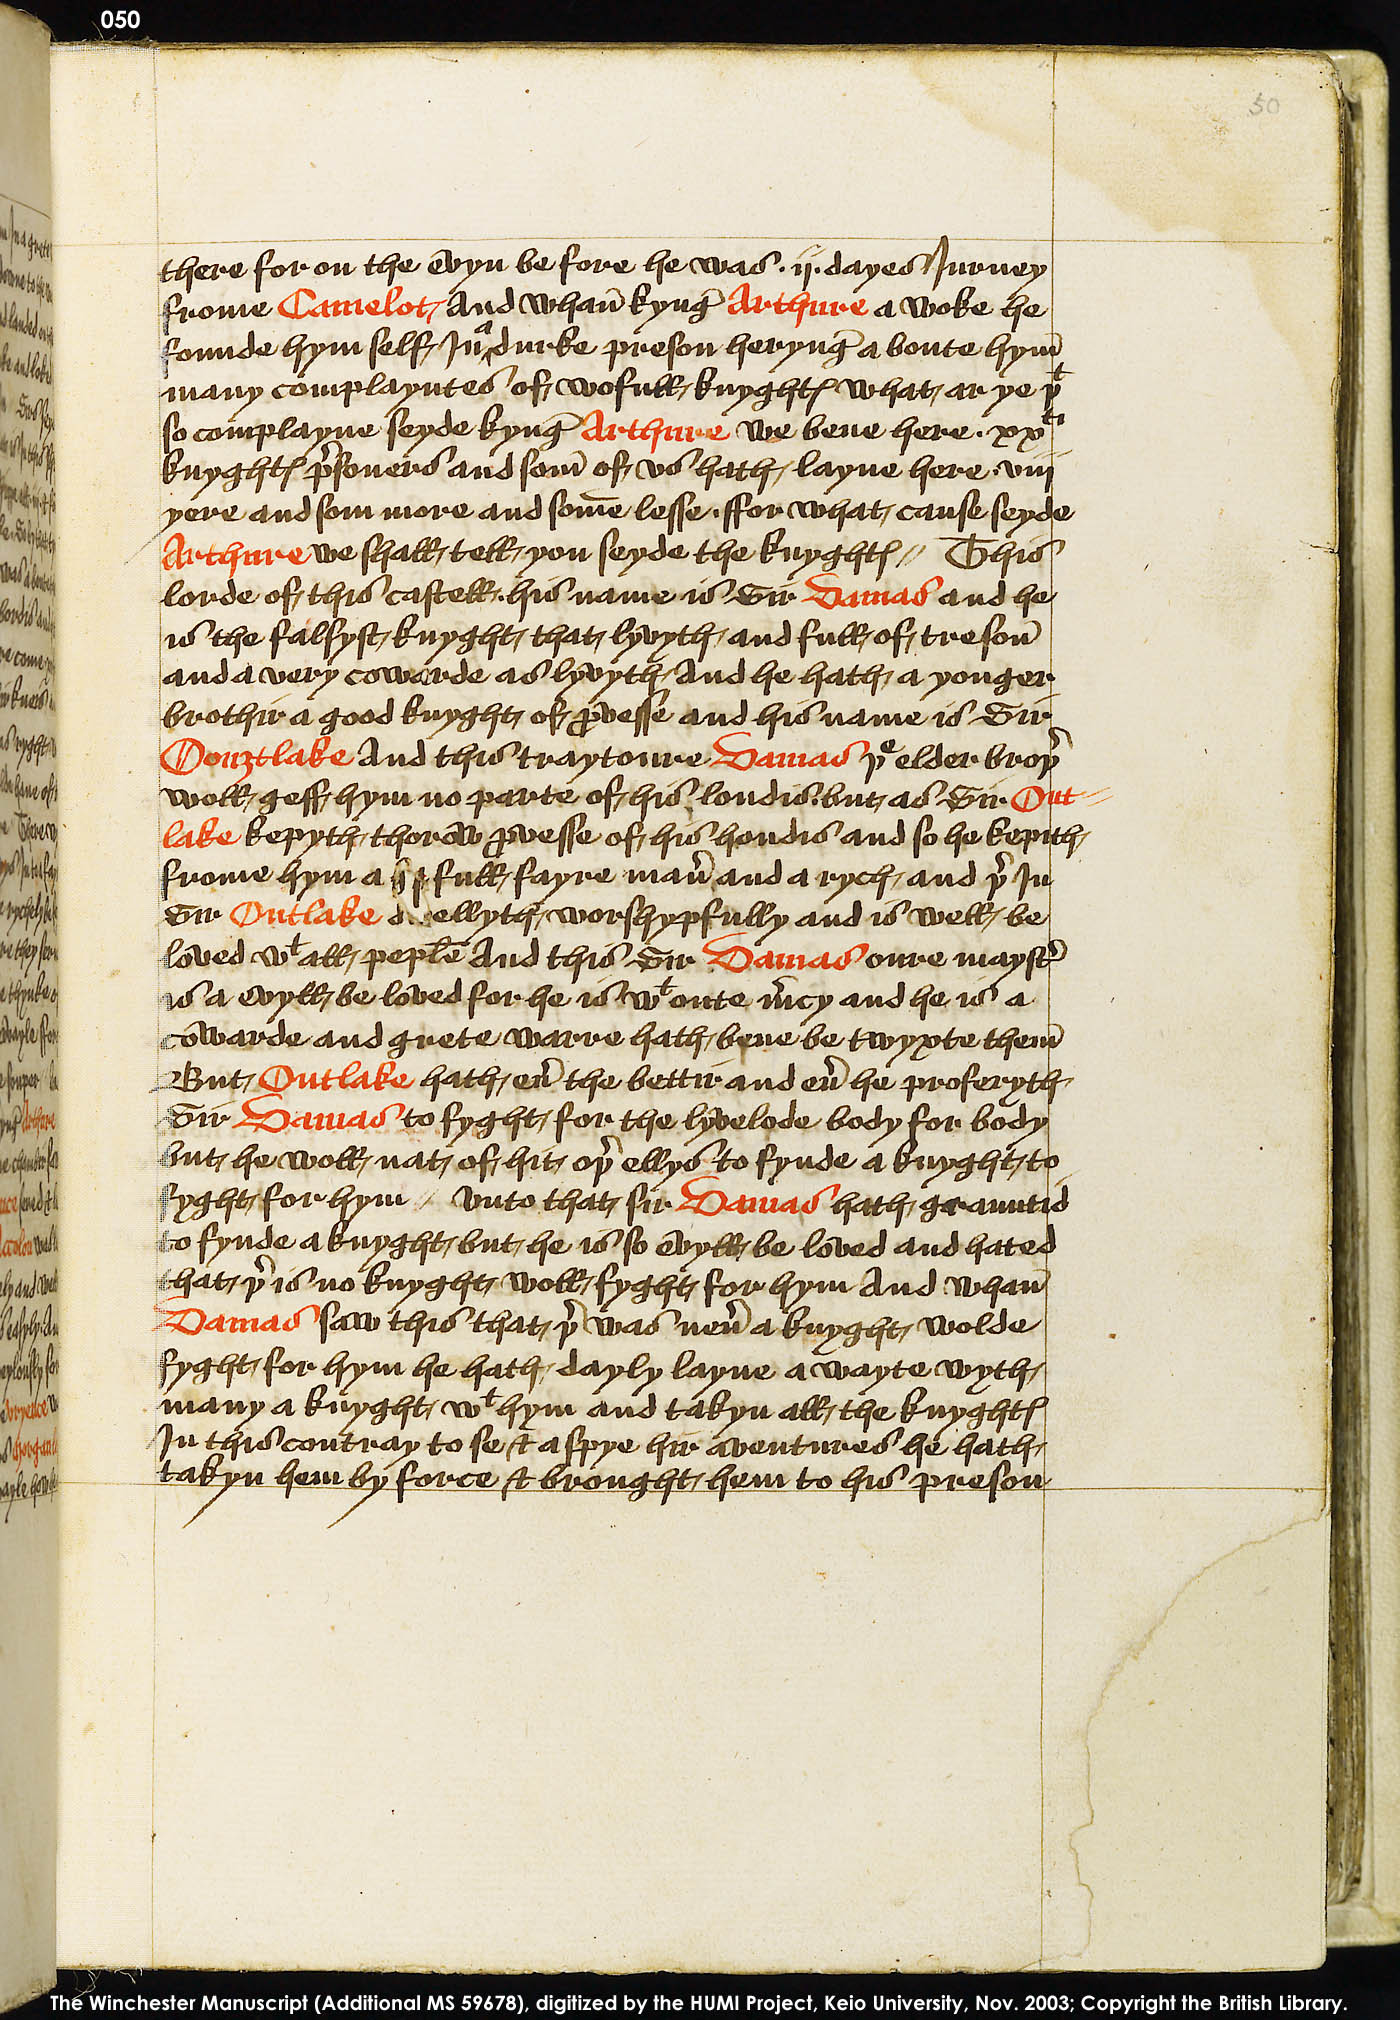 050
50
there for on the evyn be fore he was · ij · dayes Jurney
frome Camelot, And whan̄ kynḡ Arthure a woke he
founde hym self, Jn̄ a durke preson herynḡ a boute hym̄
many complayntes of, wofull, knyghtꝭ what, ar ye þᵗ
so complayne seyde kynḡ Arthure we bene here · xxᵗⁱ
knyghtꝭ p̉soners and som̄ of, vs hath, layne here · viij
yere and som more and som̄e lesse · ffor what, cause seyde
Arthure we shall, tell, you seyde the knyghtꝭ // This
lorde of, this castell, his name is Sir Damas and he
is the falsyst, knyght, that, lyvyth, and full, of, treson̄
and a very cowarde as lyvyth, And he hath, a yonger
brothir a good knyght, of, ꝓvesse and his name is Sir
Oonztlake And this traytoure Damas þᵉ elder broþ̉
woll, geff, hym no parte of, his londis · but, as Sir Out=
lake kepyth, thorow ꝓvesse of, his hondis and so he kepith,
frome hym a full, fayre man̉ and a rych, and þ̉ Jn
Sir Outlake dwellyth, worshypfully and is well, be
loved wᵗ all, peple And this Sir Damas oure mayst̉
is a evyll, be loved for he is wᵗ oute m̉cy and he is a
cowarde and grete warre hath, bene be twyxte them̄
But, Outlake hath, eủ the bettir and eủ he proferyth,
Sir Damas to fyght, for the lyvelode body for body
but, he woll, nat, of, hit, oþ̉ ellys to fynde a knyght, to
fyght, for hym // vnto that, sir Damas hath, grauntid
to fynde a knyght, but, he is so evyll, be loved and hated
that, þ̉ is no knyght, woll, fyght, for hym And whan̄
Damas saw this that, þ̉ was neủ a knyght, wolde
fyght, for hym he hath, dayly layne a wayte wyth,
many a knyght, wᵗ hym and takyn all, the knyghtꝭ
Jn this contray to se & aspye hir aventures he hath,
takyn hem by force & brought, hem to his preson
The Winchester Manuscript (Additional MS 59678), digitized by the HUMI Project, Keio University, Nov. 2003; Copyright the British Library.